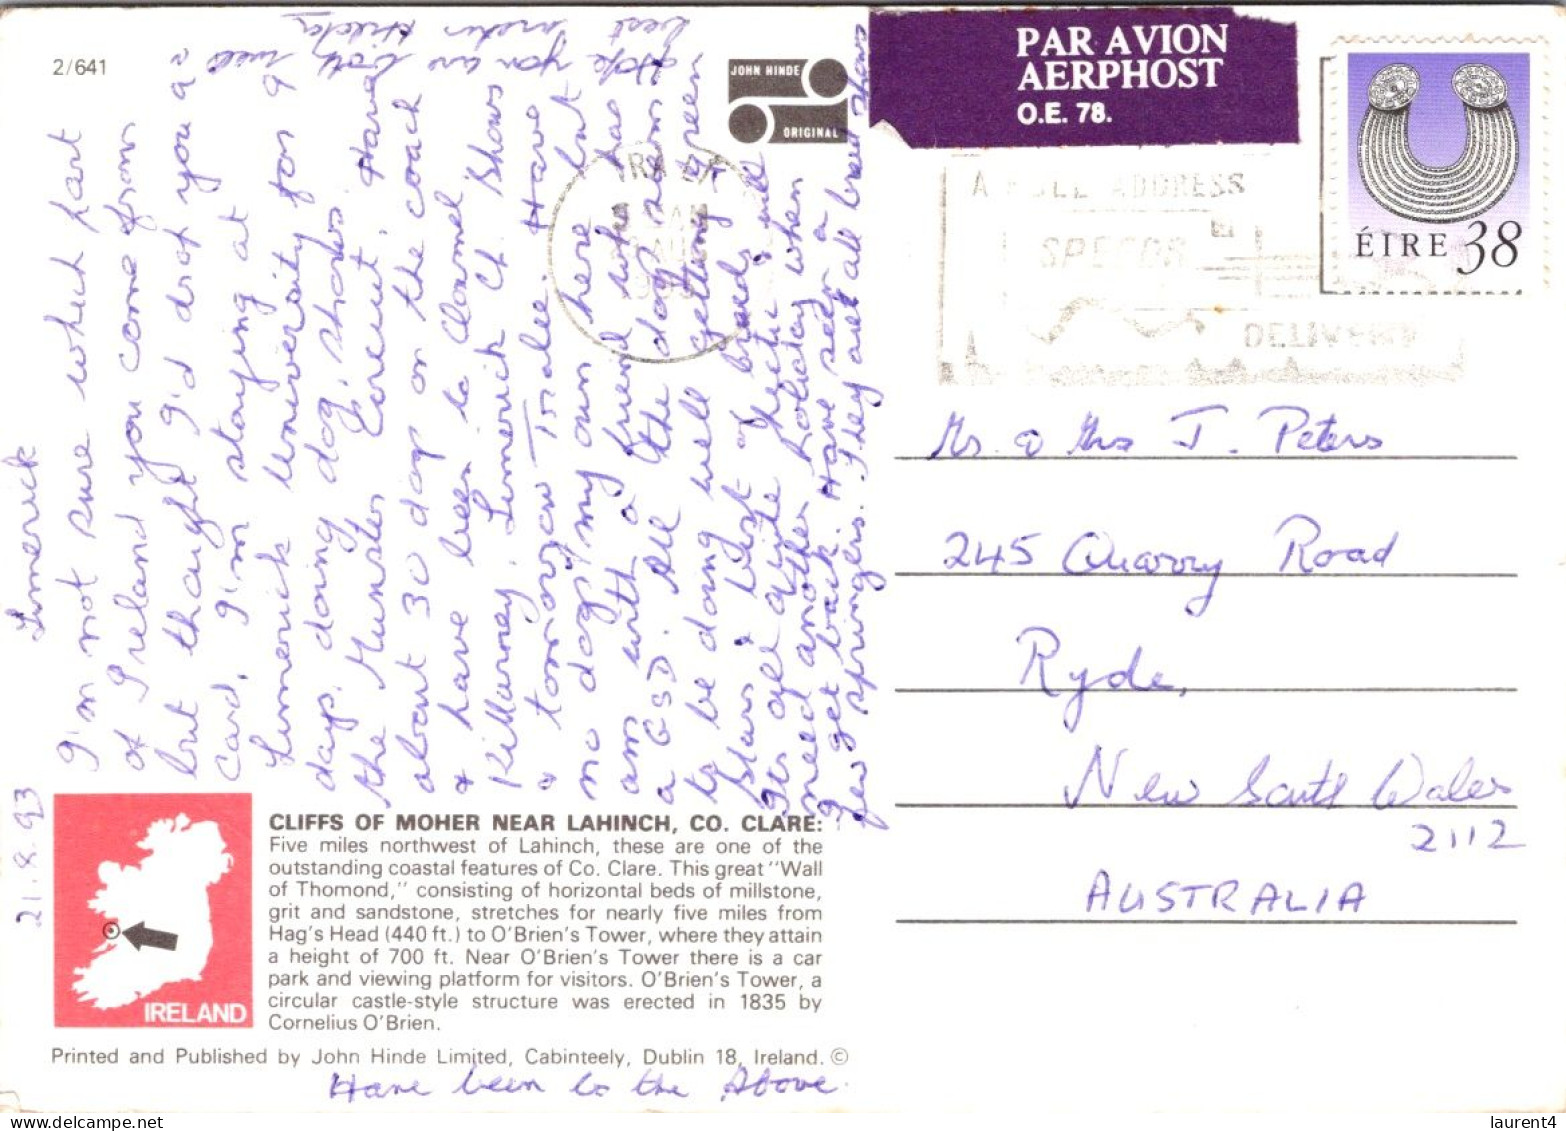 2/641
Limerick
21.8.93
I'm not sure which part
of Ireland you come from
but thought I'd drop you a
card. I'm staying at
Limerick University for 9
days, doing dog shows.
the Munster Circuit. Have
about 30 dogs on the coach
+ have been to Clonmel
Killarney, Limerick Ch. Shows
+ tomorrow Tralee. Have
no dogs my own here but
am with a friend who has
a GSD. All the dogs seem
to be doing well getting green
stars + best of breeds.
Its all quite hectic will
need another holiday when
I get back. Have seen a
few springers. They are all
Hope you are both well
best
JOHN HINDE
ORIGINAL
PAR AVION
AERPHOST
O.E. 78.
ÉIRE 38
ADDRESS
SPEEDS
DELIVERY
Mr. & Mrs J. Peters
245 Quarry Road
Ryde,
New South Wales
2112
AUSTRALIA
IRELAND
CLIFFS OF MOHER NEAR LAHINCH, CO. CLARE:
Five miles northwest of Lahinch, these are one of the
outstanding coastal features of Co. Clare. This great "Wall
of Thomond," consisting of horizontal beds of millstone,
grit and sandstone, stretches for nearly five miles from
Hag's Head (440 ft.) to O'Brien's Tower, where they attain
a height of 700 ft. Near O'Brien's Tower there is a car
park and viewing platform for visitors. O'Brien's Tower, a
circular castle-style structure was erected in 1835 by
Cornelius O'Brien.
Printed and Published by John Hinde Limited, Cabinteely, Dublin 18, Ireland. ©
Have been to the Above.
laurent4